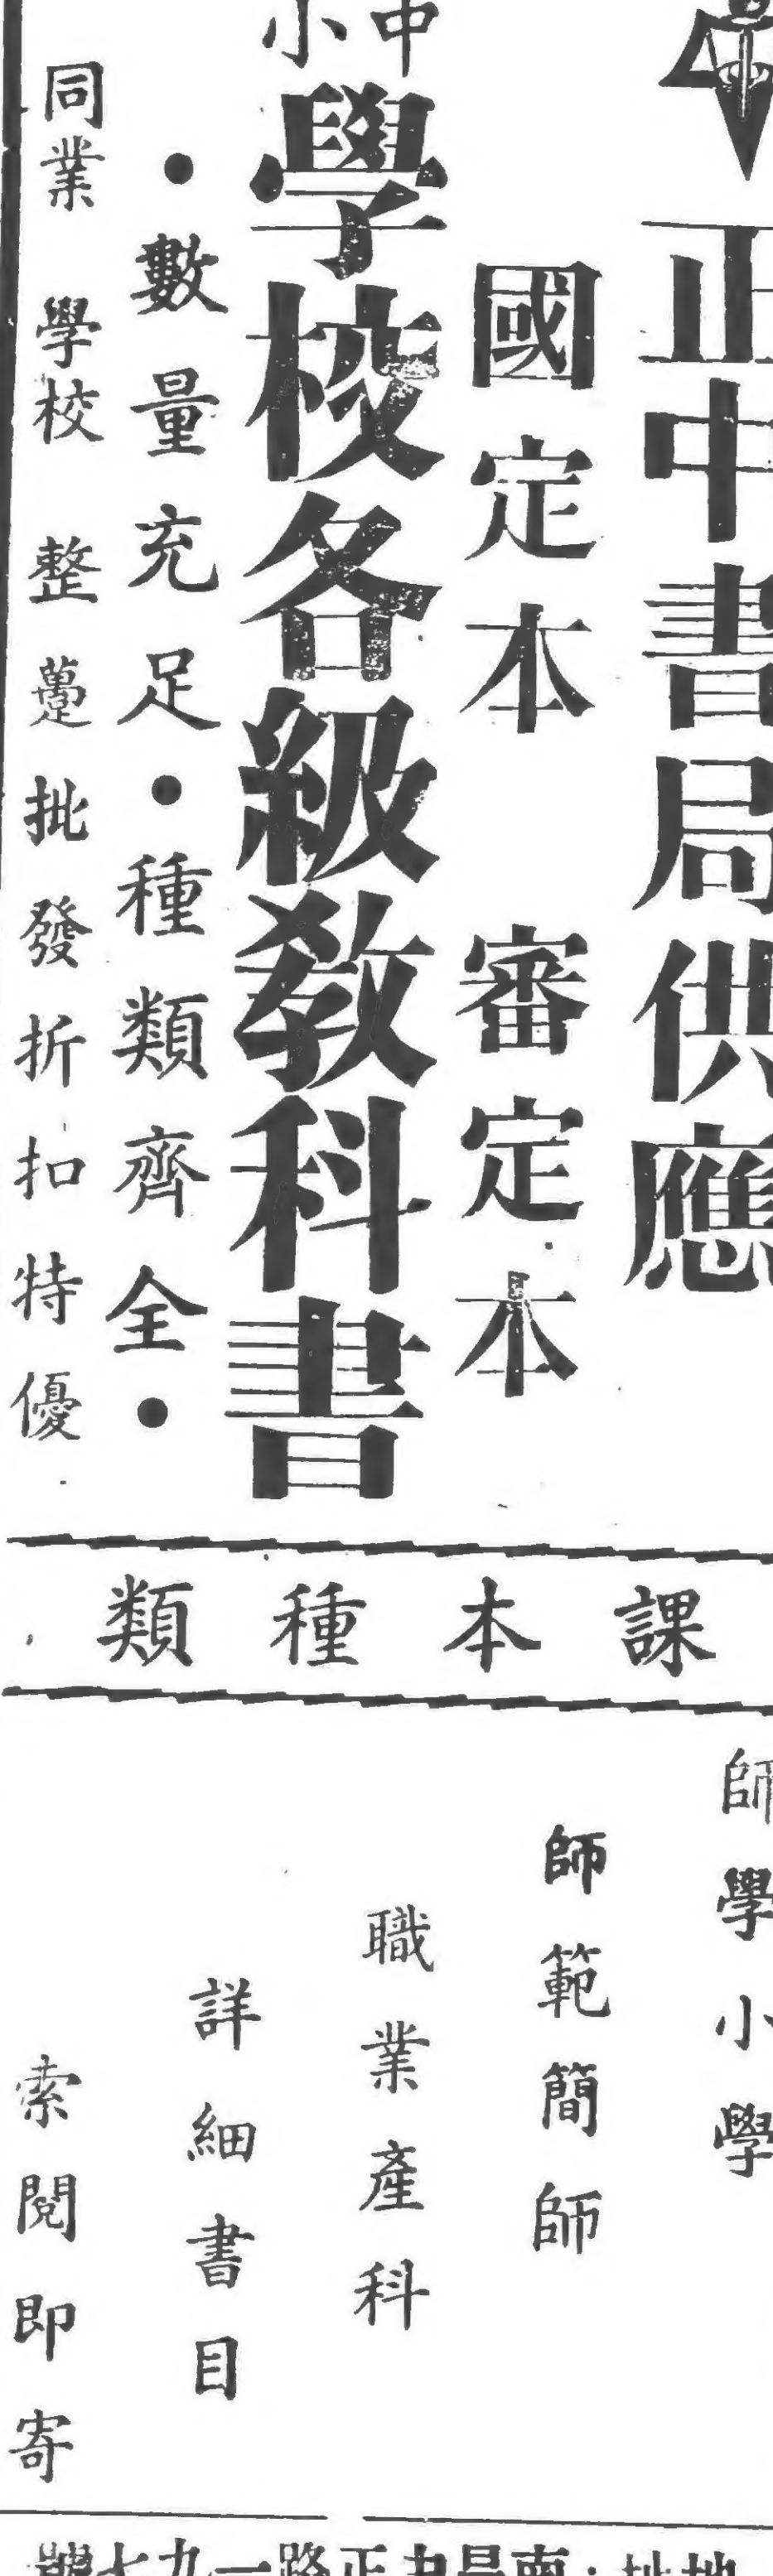 正中書局供應
國定本 審定本
中小學校各級教科書
·數量充足·種類齊全·
同業 學校 整躉批發折扣特優
課本種類
師學小學
師範簡師
職業產科
詳細書目
索閱即寄
地址:南昌中正路一九七號